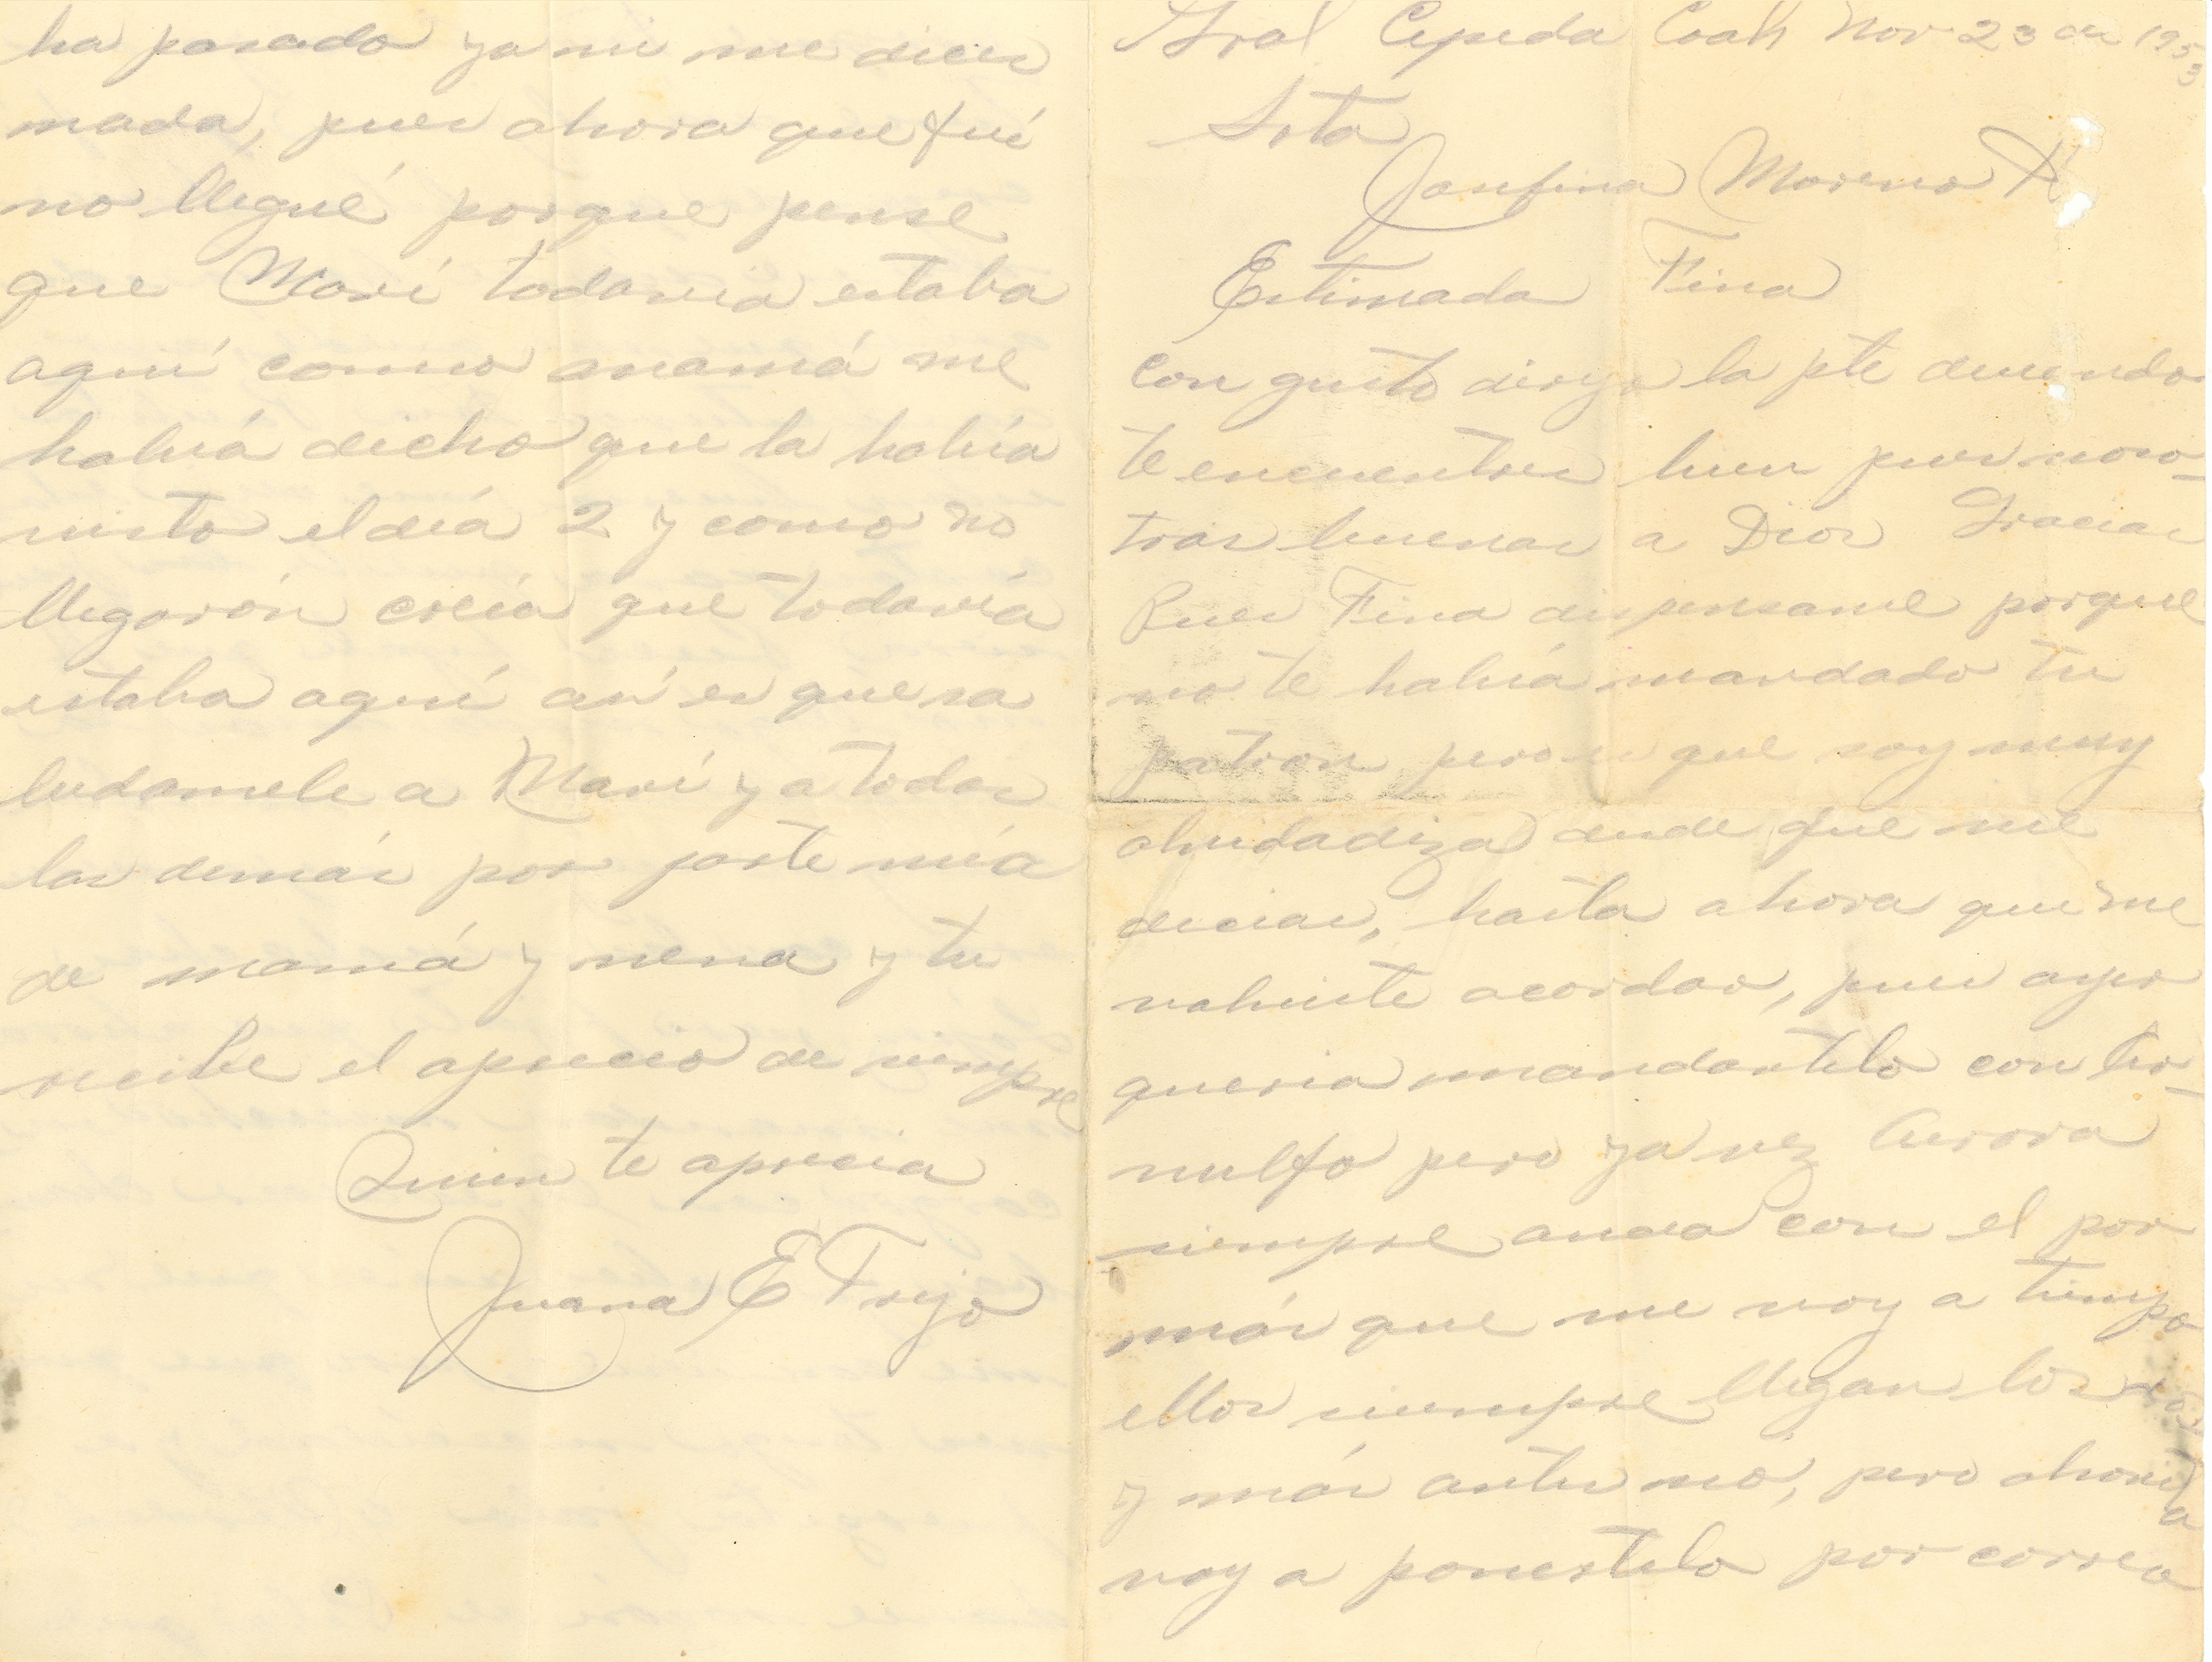 Gral Cepeda Coah Nov 23 de 1953
Srta
Josefina Moreno A
Estimada Fina
Con gusto dirijo la pte deseando
te encuentres bien pues noso-
tras buenas a Dios Gracias
Pues Fina dispensame porque
no te habiá mandado tu
patron pero es que soy muy
olvidadiza desde que me
decias, hasta ahora que me
volviste acordar, pues ayer
queria mandartelo con
nulfo pero ya vez Aurora
siempre anda con el por
más que me voy a tiempo
ellos siempre llegan los
y más antes no, pero ahorita
voy a ponertelo por correo
ha pasado ya ni me dices
nada, pues ahora que fuí
no llegué porque pense
que Marí todavia estaba
aquí como mamá me
habiá dicho que la había
visto el diá 2 y como no
llegarón creía que todavía
estaba aquí así es que sa
ludamele a Marí y a todos
los demás por parte mía
de mamá y nena y tu
recibe el aprecio de siempre
Quien te aprecia
Juana E Trejo